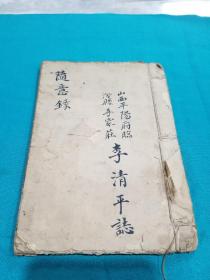 山西平陽府臨
汾縣喬家莊
李清平誌
隨意錄